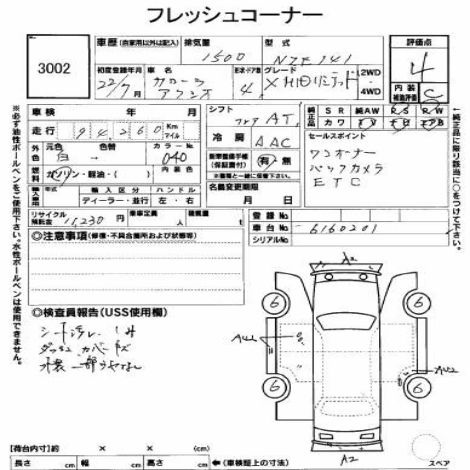 フレッシュコーナー
3002
車歴 (自家用以外は記入) 排気量 1500 型式 NZE141
初度登録年月 22/7月 車名 カローラ アクシオ ドア数 4 グレード X HIDリミテッド 2WD・4WD
評価点 4
内装補助評価 C
車検 年 月
走行 94260 Km マイル
外色 元色 白 → 色替 カラーNo. 040
燃料 ガソリン・軽油・( ) 内装色
輸入車 年 輸入区分 ディーラー・並行 ハンドル 左・右
リサイクル預託金 11230円 乗車定員 人 積載量 t
シフト フロア AT
冷房 AAC
新車整備手帳(保証書付) 有・無
名義変更期限 月 日
純正品 SR 純AW PS PW
カワ ナビ TV エアB
セールスポイント
ワンオーナー
バックカメラ
ETC
登録No.
車台No. 6160201
シリアルNo.
◎注意事項(修復・不具合箇所および状態等)
◎検査員報告(USS使用欄)
シート汚レ シミ
ダッシュ カバー キズ
※必ず油性ボールペンをご使用下さい。水性ボールペンは使用できません。
←純正品に限り該当に○をつけて下さい。
A2
6
6
6
6
AU2
A2
スペア
【荷台内寸】約 × ×
長さ cm 幅 cm 高さ cm ←(車検証上の寸法)